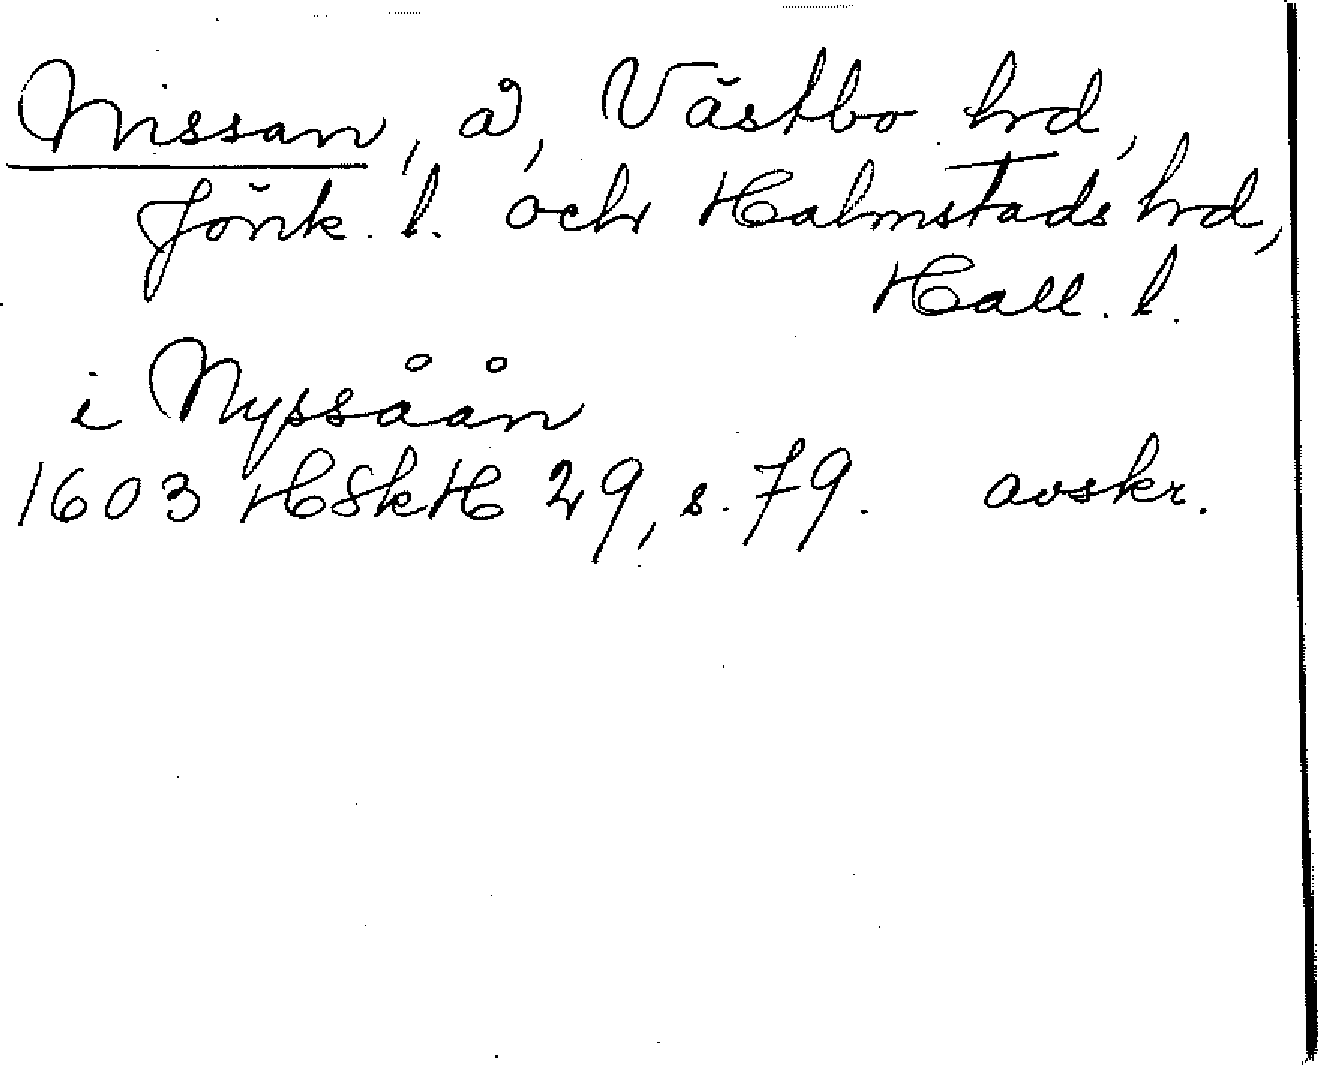 Nissan, å, Västbo hd,
Jönk. l. och Halmstads hd,
Hall. l.
i Nyssåån
1603 HSkH 29, s. 79. avskr.